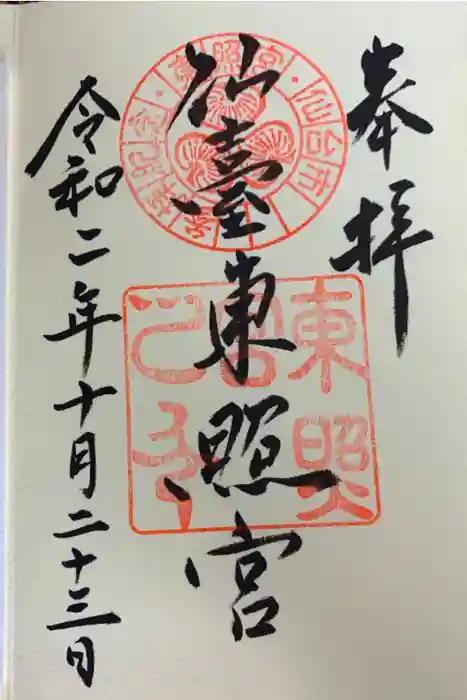 奉拝
仙臺東照宮
令和二年十月二十三日
東照
宮
之印
仙台市
東照宮